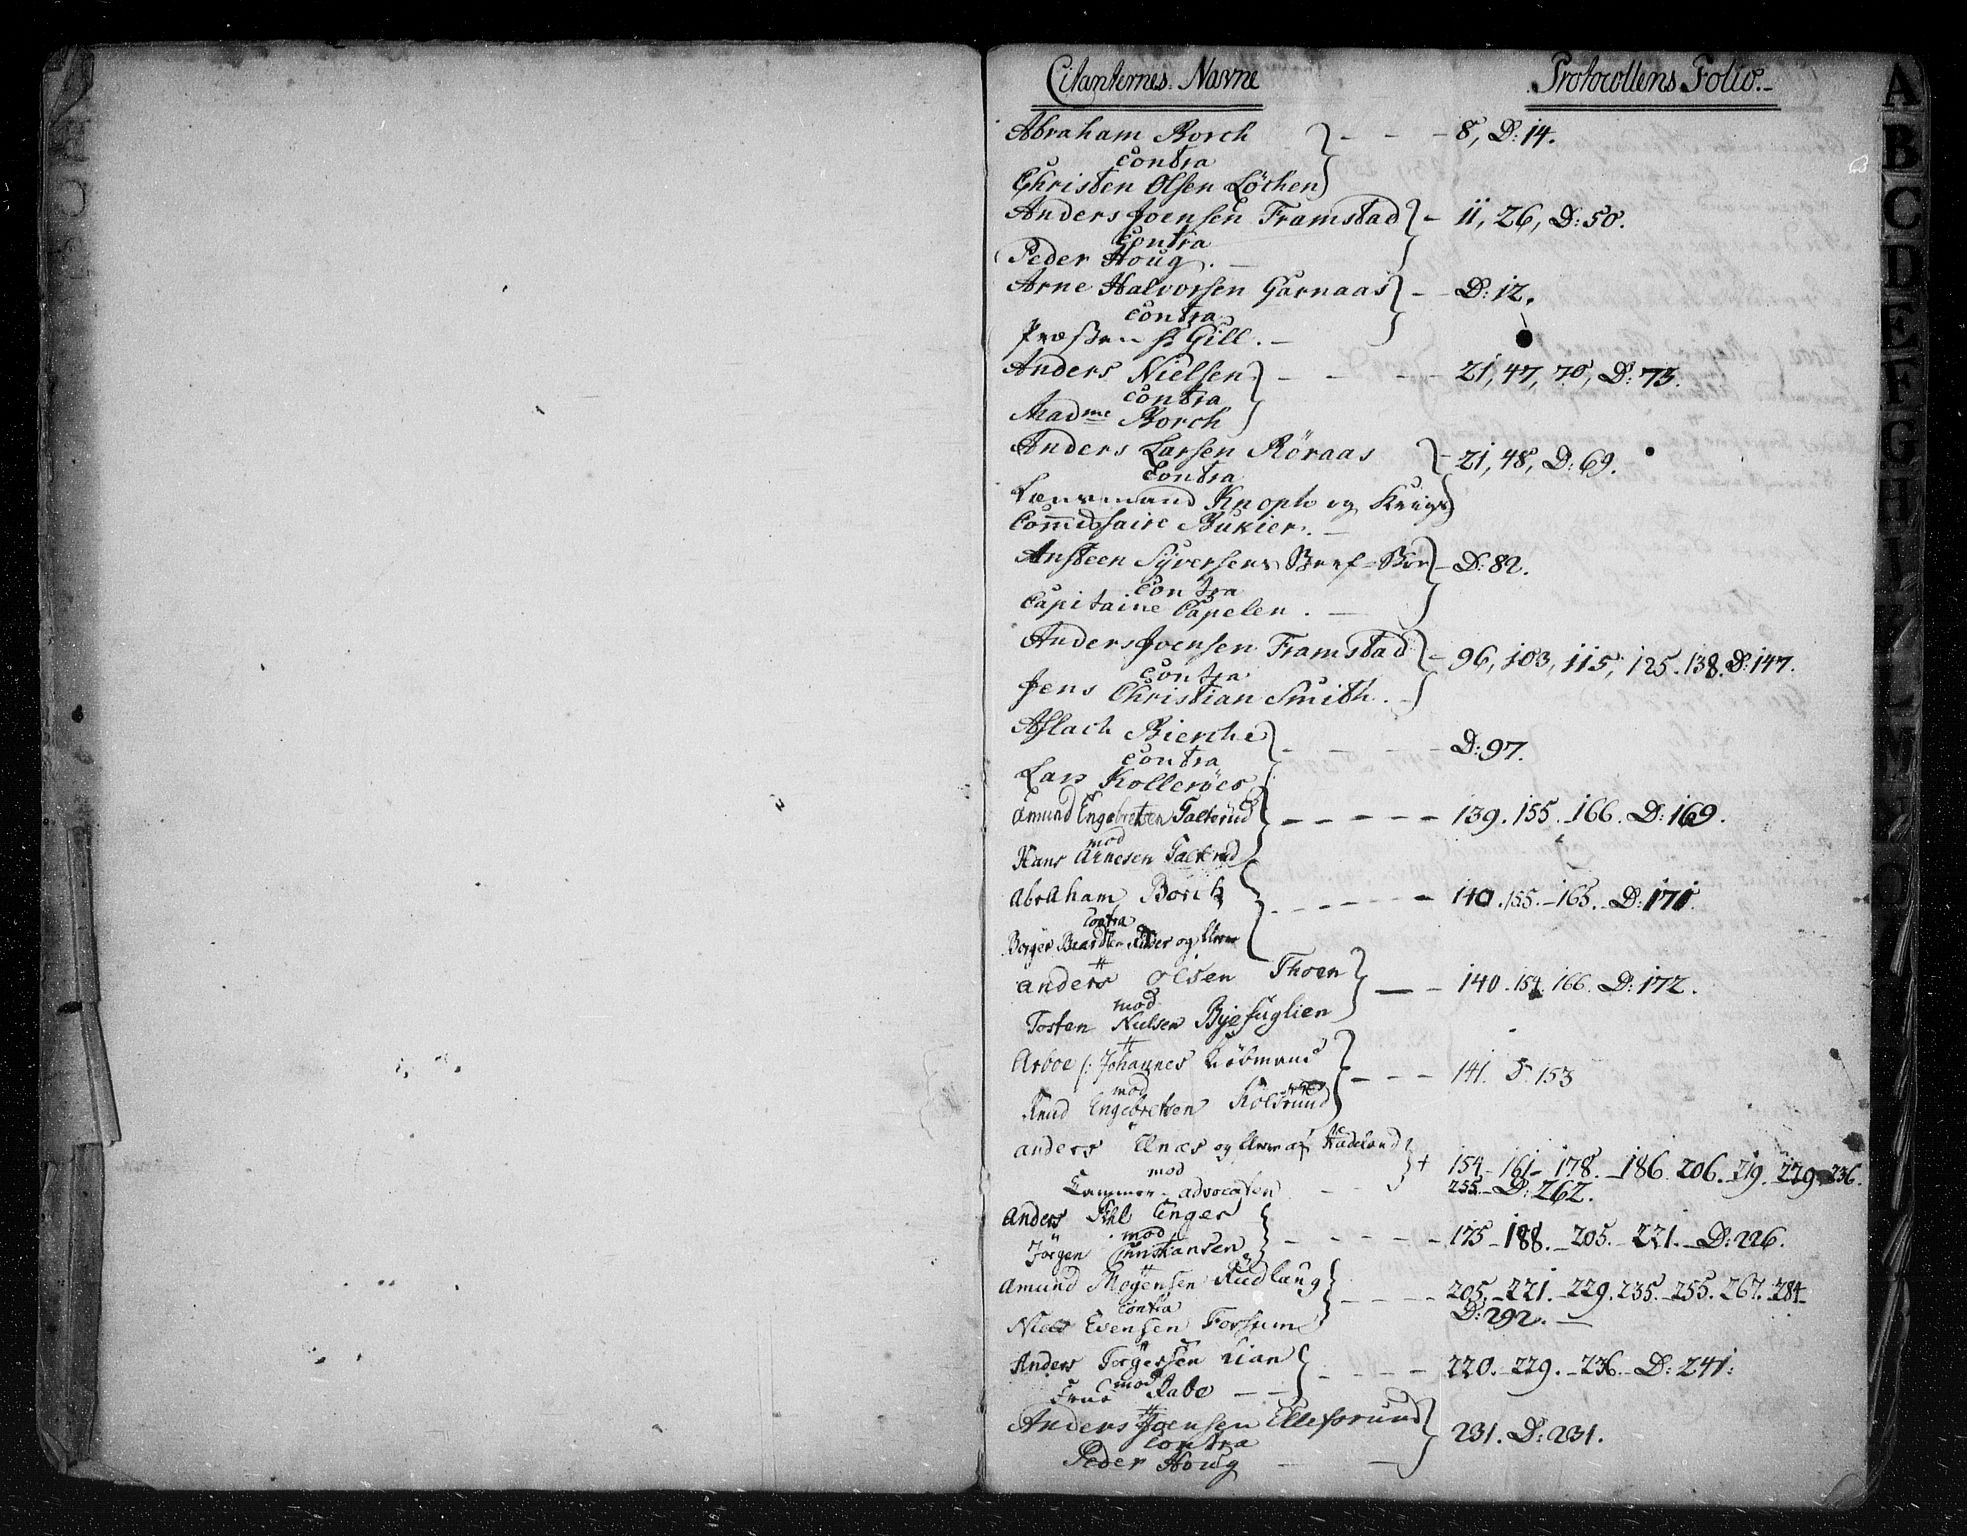 Citanternes Navne
Protocollens Folio.
Abraham Borch - - - 8, D: 14.
contra
Christen Olsen Löchen
Anders Joensen Framstad - 11, 26, D: 50.
Contra
Peder Houg. -
Arne Halvorsen Garnaas - - D: 12.
contra
Præsten Hr Gill. -
Anders Nielsen - - - - 21, 47, 70, D: 73.
contra
Madme Borch
Anders Larsen Röraas - 21, 48, D: 69.
Contra
Lænsmand Knoph og Krigs
Commissaire Bukier. -
Ansteen Syversens - D: 82.
Contra
Capitaine Capelen. -
Anders Joensen Framstad - 96, 103, 115, 125. 138. D: 147.
Contra
Jens Christian Smith. -
Aslach Bierche - - - D: 97.
contra
Lars Kolleröes
Amund Engebretsen Falterud - - - - - 139. 155. 166. D: 169.
mod
Hans Arnesen Falterud
Abraham Borch - - - - 140. 155. 165. D: 171.
Contra
og
Anders Olsen Thoen - - 140. 154. 166. D: 172.
mod
Tosten Nielsen Byefuglien
Arboe /: Johannes - - - 141. D. 153
mod
Knud Engebretsen
Anders Elnæs og af Hadeland + 154 - 161 - 178. - 186. 206. 219. 229. 236.
mod
Cammer-advocaten - - 255. D: 262.
Anders Enger - - - - 175 - 188. - 205. - 221. - D: 226.
mod
Jörgen Christiansen
Amund Mogensen Rudlang - - - - 205. - 221. - 229. 235. - 255. 267. 284
Contra
D: 292. -
Niels Evensen Forsum
Anders Torgersen Lian - - - - 220. - 229. - 236. - D: 241.
mod
Frue Rabe - -
Anders Joensen Ellefsrund 231. D: 231.
Contra
Peder Houg - -
A
B
C
D
E
F
G
H
I
K
L
M
N
O